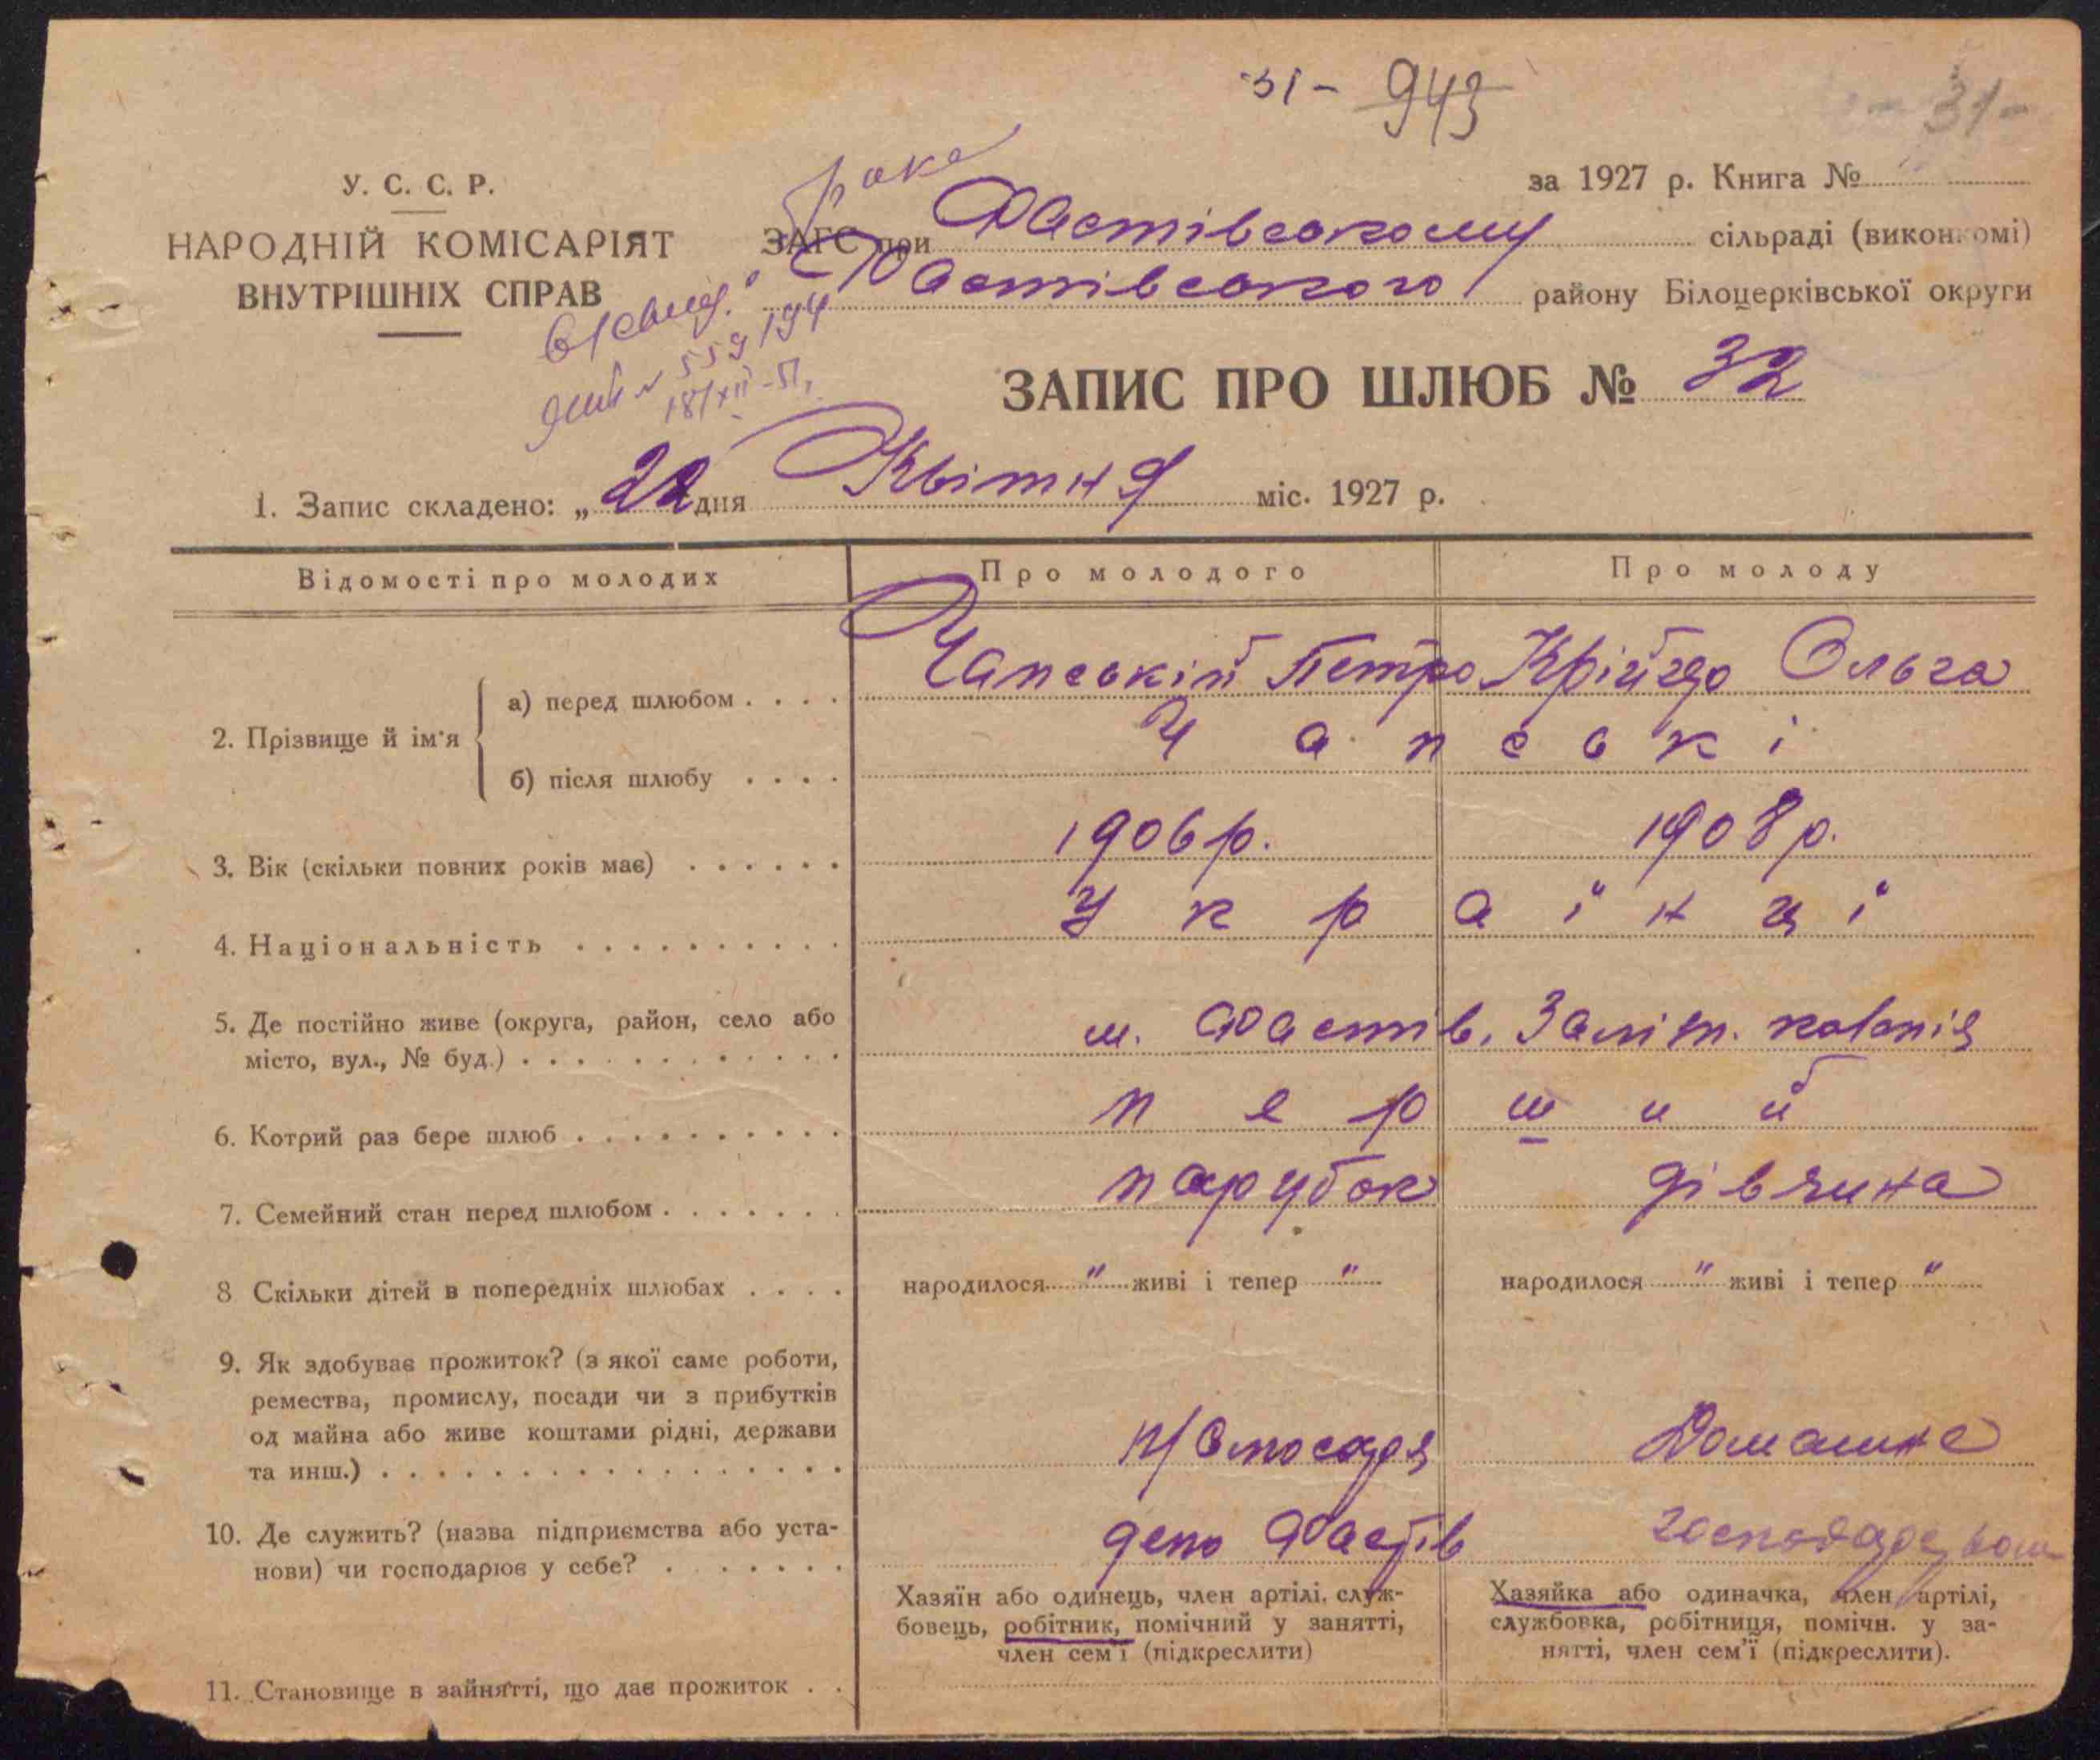 31 - 943
- 31 -
У. С. С. Р.
НАРОДНІЙ КОМІСАРІЯТ
ВНУТРІШНІХ СПРАВ
за 1927 р. Книга №
ЗАГС при Фастівському сільраді (виконкомі)
Фастівського району Білоцерківської округи
559/194
18/XII-51,
ЗАПИС ПРО ШЛЮБ № 32
1. Запис складено: „ 22 дня Квітня міс. 1927 р.
Відомості про молодих Про молодого Про молоду
2. Прізвище й ім'я
а) перед шлюбом . . . . Чапський Петро Ольга
б) після шлюбу . . . . Чапські
3. Вік (скільки повних років має) . . . . . . 1906 р. 1908 р.
4. Національність . . . . . . . . . . Українці
5. Де постійно живе (округа, район, село або
місто, вул., № буд.) . . . . . . . . . . . м. Фастів, Заліз. колонія
6. Котрий раз бере шлюб . . . . . . . . . . перший
7. Семейний стан перед шлюбом . . . . . . . парубок дівчина
8 Скільки дітей в попередніх шлюбах . . . . народилося " живі і тепер " народилося " живі і тепер "
9. Як здобуває прожиток? (з якої саме роботи,
ремества, промислу, посади чи з прибутків
од майна або живе коштами рідні, держави
та инш.) . . . . . . . . . . . . . . . . . Домашнє
10. Де служить? (назва підприємства або уста-
нови) чи господарює у себе? . . . . . . . депо Фастів
Хазяїн або одинець, член артілі, служ-
бовець, робітник, помічний у занятті,
член сем'ї (підкреслити)
Хазяйка або одиначка, член артілі,
службовка, робітниця, помічн. у за-
нятті, член сем'ї (підкреслити).
11. Становище в зайнятті, що дає прожиток . .